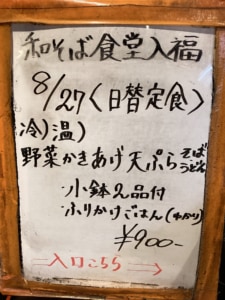 和そば食堂入福
8/27〈日替定食〉
冷)温)
野菜かきあげ天ぷらそばうどん
・小鉢2品付
・ふりかけごはん(わかり)
¥900-
⇒入口こちら⇒